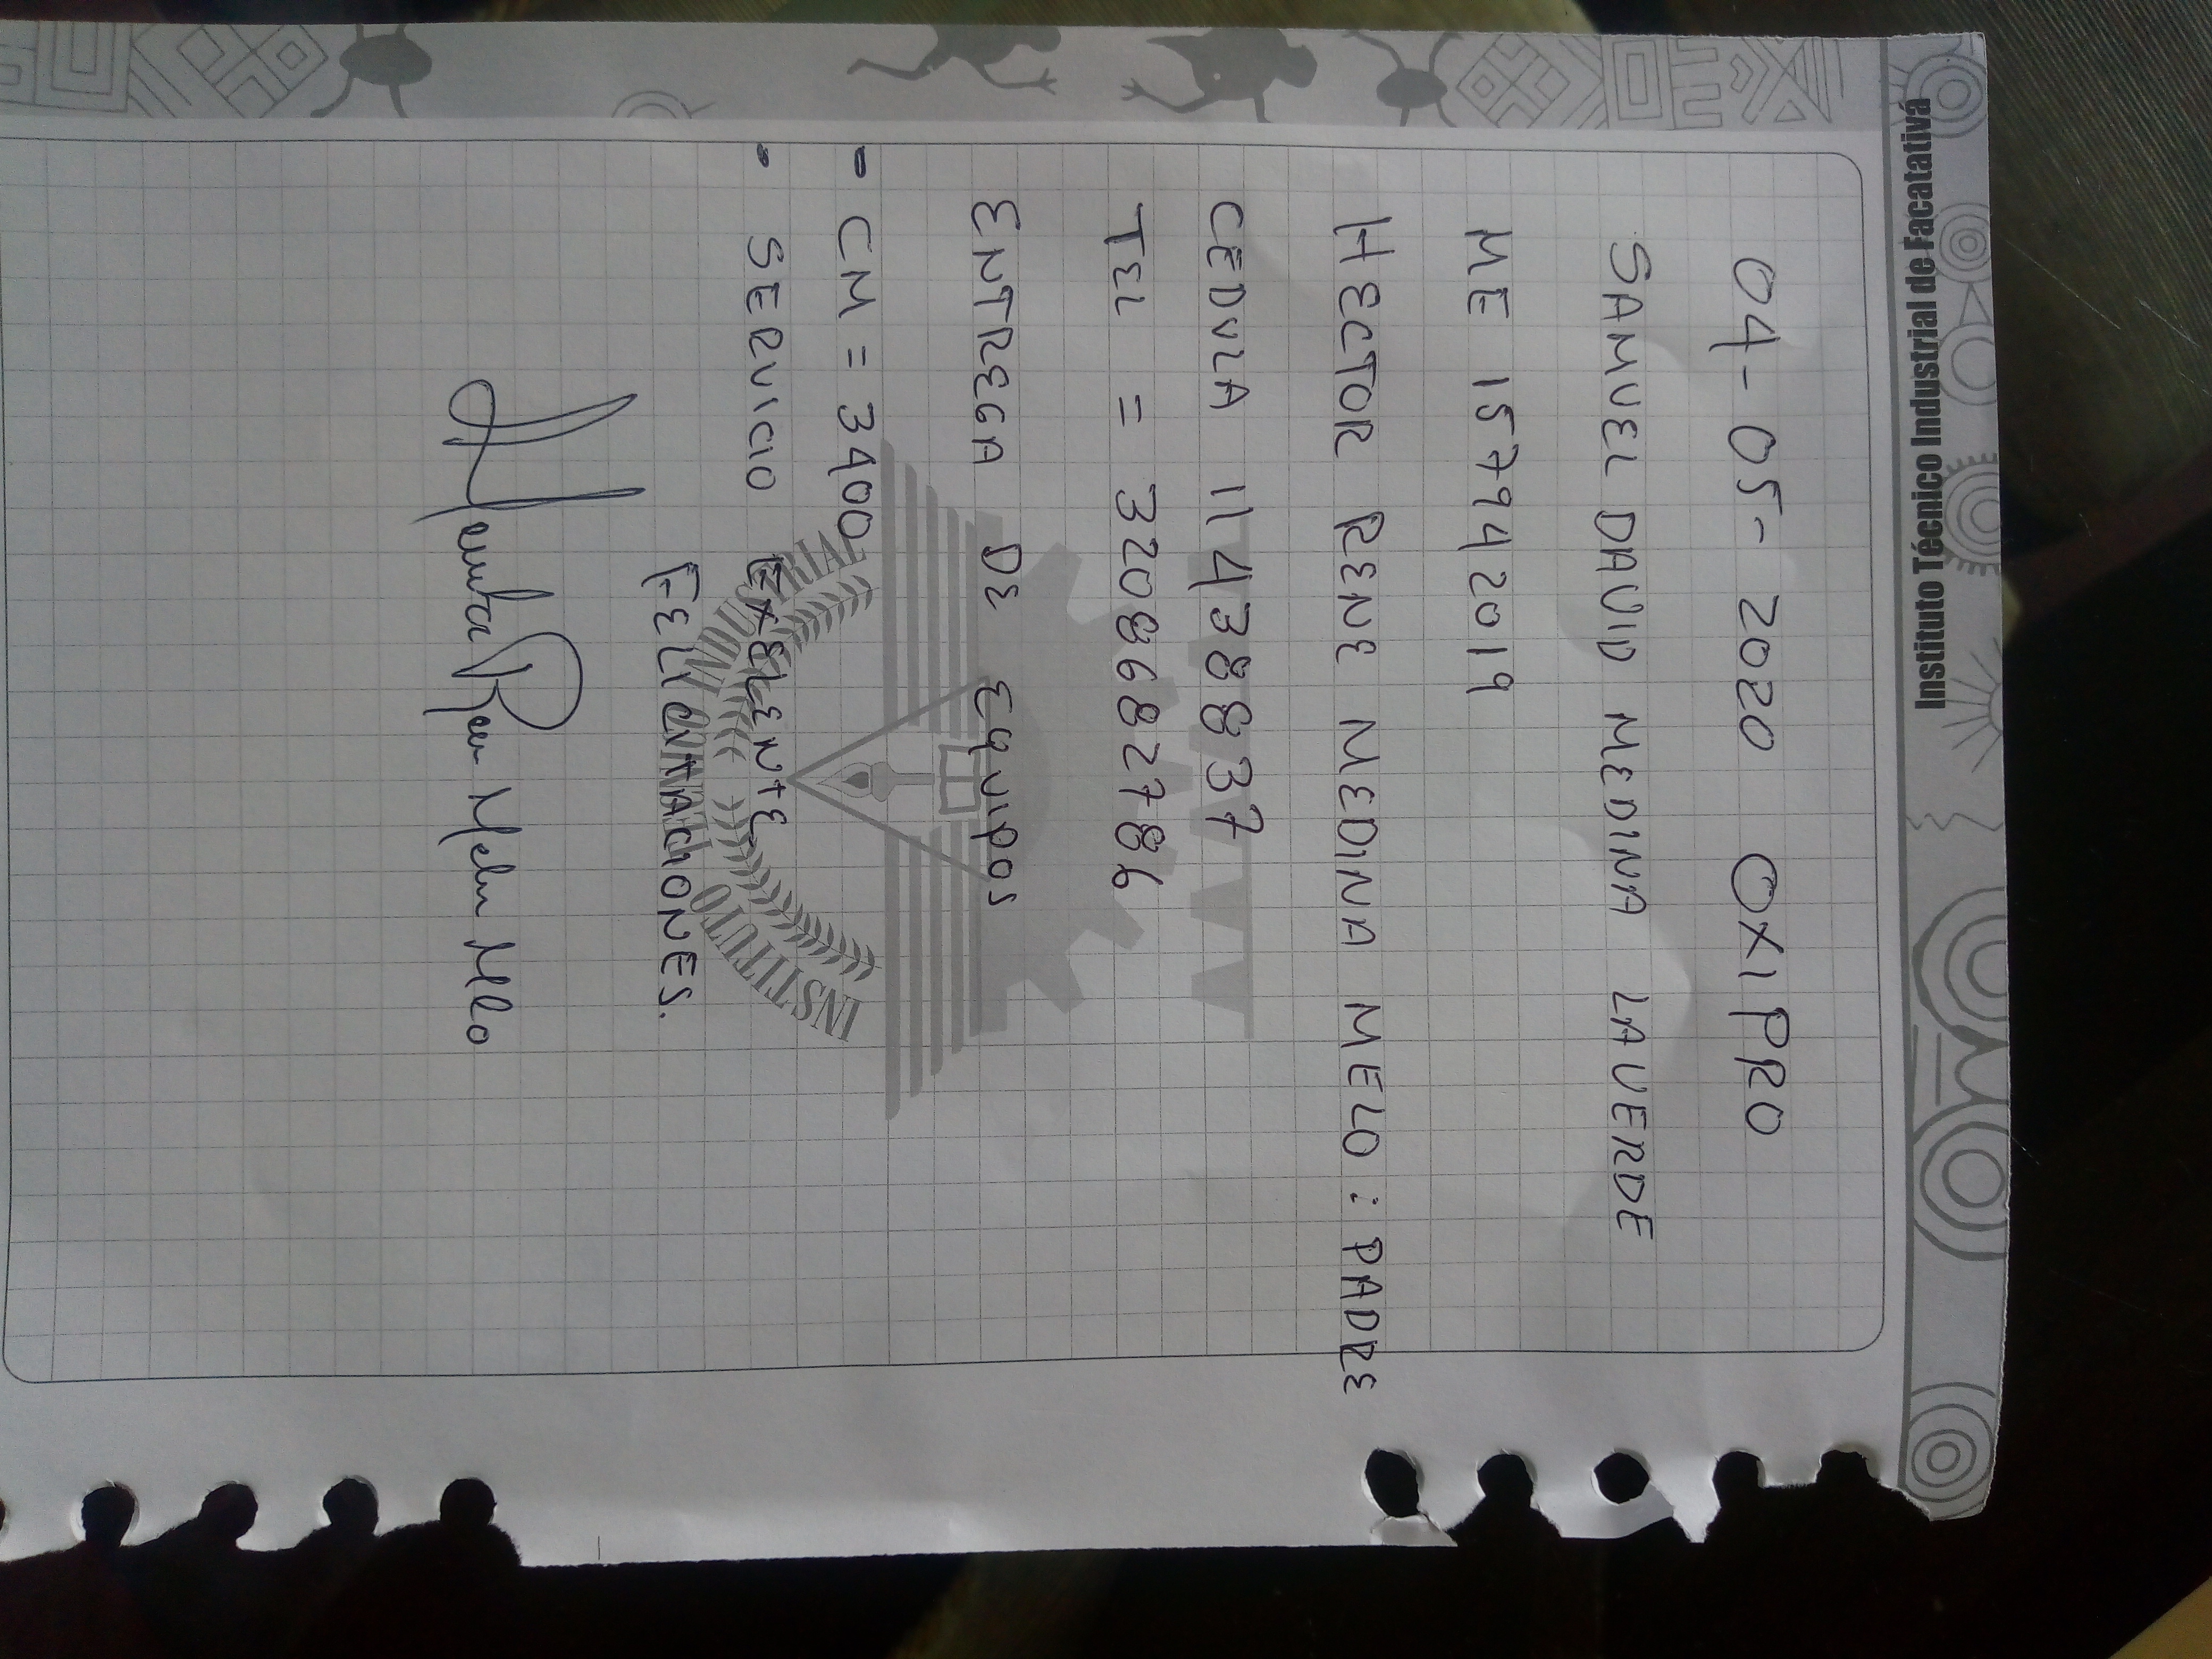 Instituto Técnico Industrial de Facatativá
04-05-2020 OXIPRO
SAMUEL DAVID MEDINA LAVERDE
ME 15794 2019
HECTOR RENE MEDINA MELO : PADRE
CEDULA 11438837
TEL = 3208682786
ENTREGA DE EQUIPOS
- CM = 3400
• SERVICIO EXELENTE
FELICITACIONES.
INSTITUTO
INDUSTRIAL